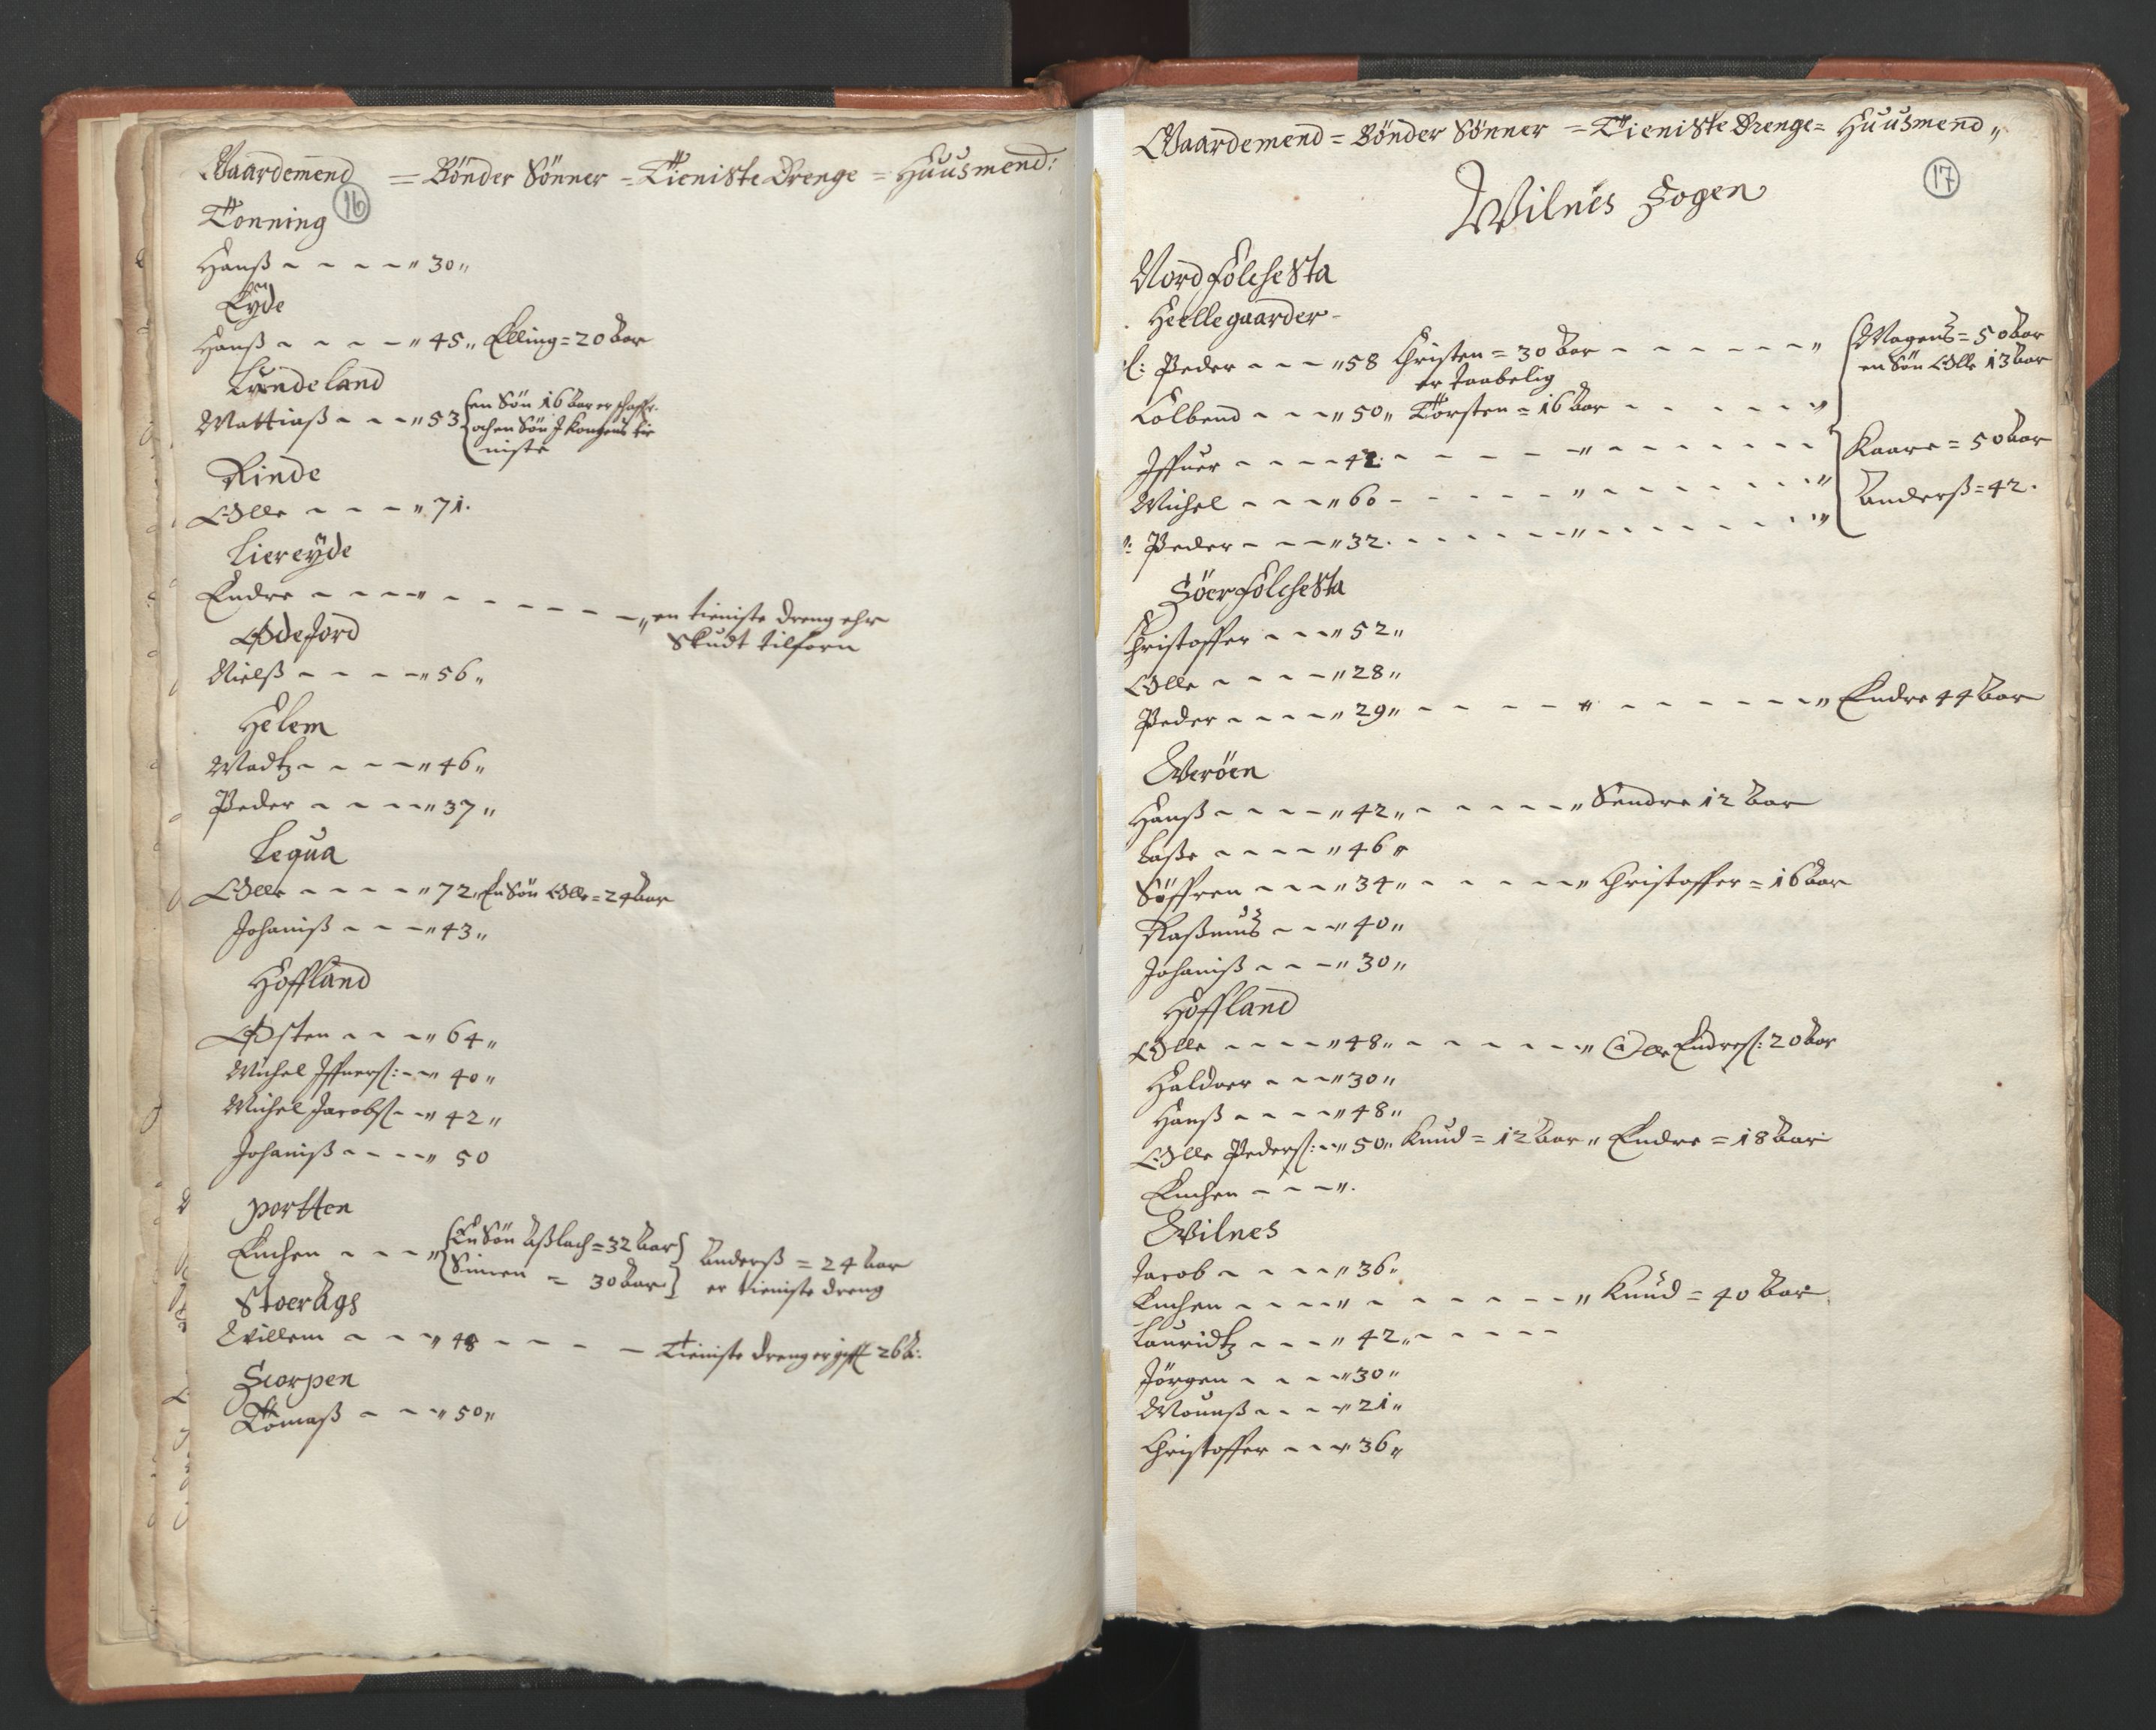 Gaardemend = Bønder Sønner = Tieniste Drenge = Huusmend:
16
Tonning
Hanß - - - - " 30 "
Eyde
Hanß - - - - " 45 " Elling = 20 aar
Lundeland
Mattiaß - - - " 53 en Søn 16 aar er
och en Søn J Kongens tie
niste
Rinde
Olle - - - - " 71.
Liereyde
Endre - - - - " - - - - - - - " en tieniste dreng ehr
Skudt tilforn
Ødeford
Nielß - - - - " 56 "
Helem
Madtz - - - - " 46 "
Peder - - - - " 37 "
Lequa
Olle - - - - " 72 " En Søn Olle = 24 aar
Johaniß - - - " 43 "
Hoffland
Østen - - - " 64 "
Michel Iffuerß: - - " 40 "
Michel Jacobß - - " 42 "
Johaniß - - - - " 50
portten
Enchen - - - " En Søn Aßlach = 32 aar Anderß = 24 aar
Simen = 30 aar er tieniste dreng
StoerAgs
Willem - - - " 48 - - - - Tieniste dreng er gifft 26 A:
Scorpen
Tomaß - - - " 50 "
Gaardemend = Bønder Sønner = Tieniste Drenge = Huusmend "
17
Wilnes Sogen
Nord folchesta
Heelle gaarder -
L: Peder - - - " 58 Christen = 30 aar - - - - - - " Mogens = 50 aar
er taabelig en Søn Olle 13 aar
Kolbend - - - " 50 " Torsten = 16 aar - - - - - "
Iffuer - - - - 42 - - - - - " - - - - - - - Kaare = 50 aar
Michel - - - " 60 - - - - - - " - - - - - - - " Anderß = 42.
Peder - - - " 32. - - - - - - " - - - - - - - "
Søer folchesta
Christoffer - - - " 52 "
Olle - - - - " 28 "
Peder - - - - " 29 " - - - - - " - - - - - - " Endre 44 aar
Werøen
Hanß - - - - " 42 " - - - - - " Sendre 12 aar
Laße - - - - " 46 "
Søffren - - - " 34 " - - - - - " Christoffer = 16 aar
Raßmus - - - " 40 "
Johaniß - - - " 30 "
Hoffland
Olle - - - - " 48 " - - - - - - " Olle Endreß: 20 aar
Haldoer - - - " 30 "
Hanß - - - - " 48 "
Olle Pederß: - - " 50 " Knud = 12 aar " Endre = 18 aar
Enchen - - - ".
Wilnes
Jacob - - - - " 36 "
Enchen - - - - " - - - - - - - " Knud = 40 aar
Lauridtz - - - " 42 " - - - - -
Jörgen - - - - " 30 "
Mounß - - - - " 21 "
Christoffer - - - " 36 "